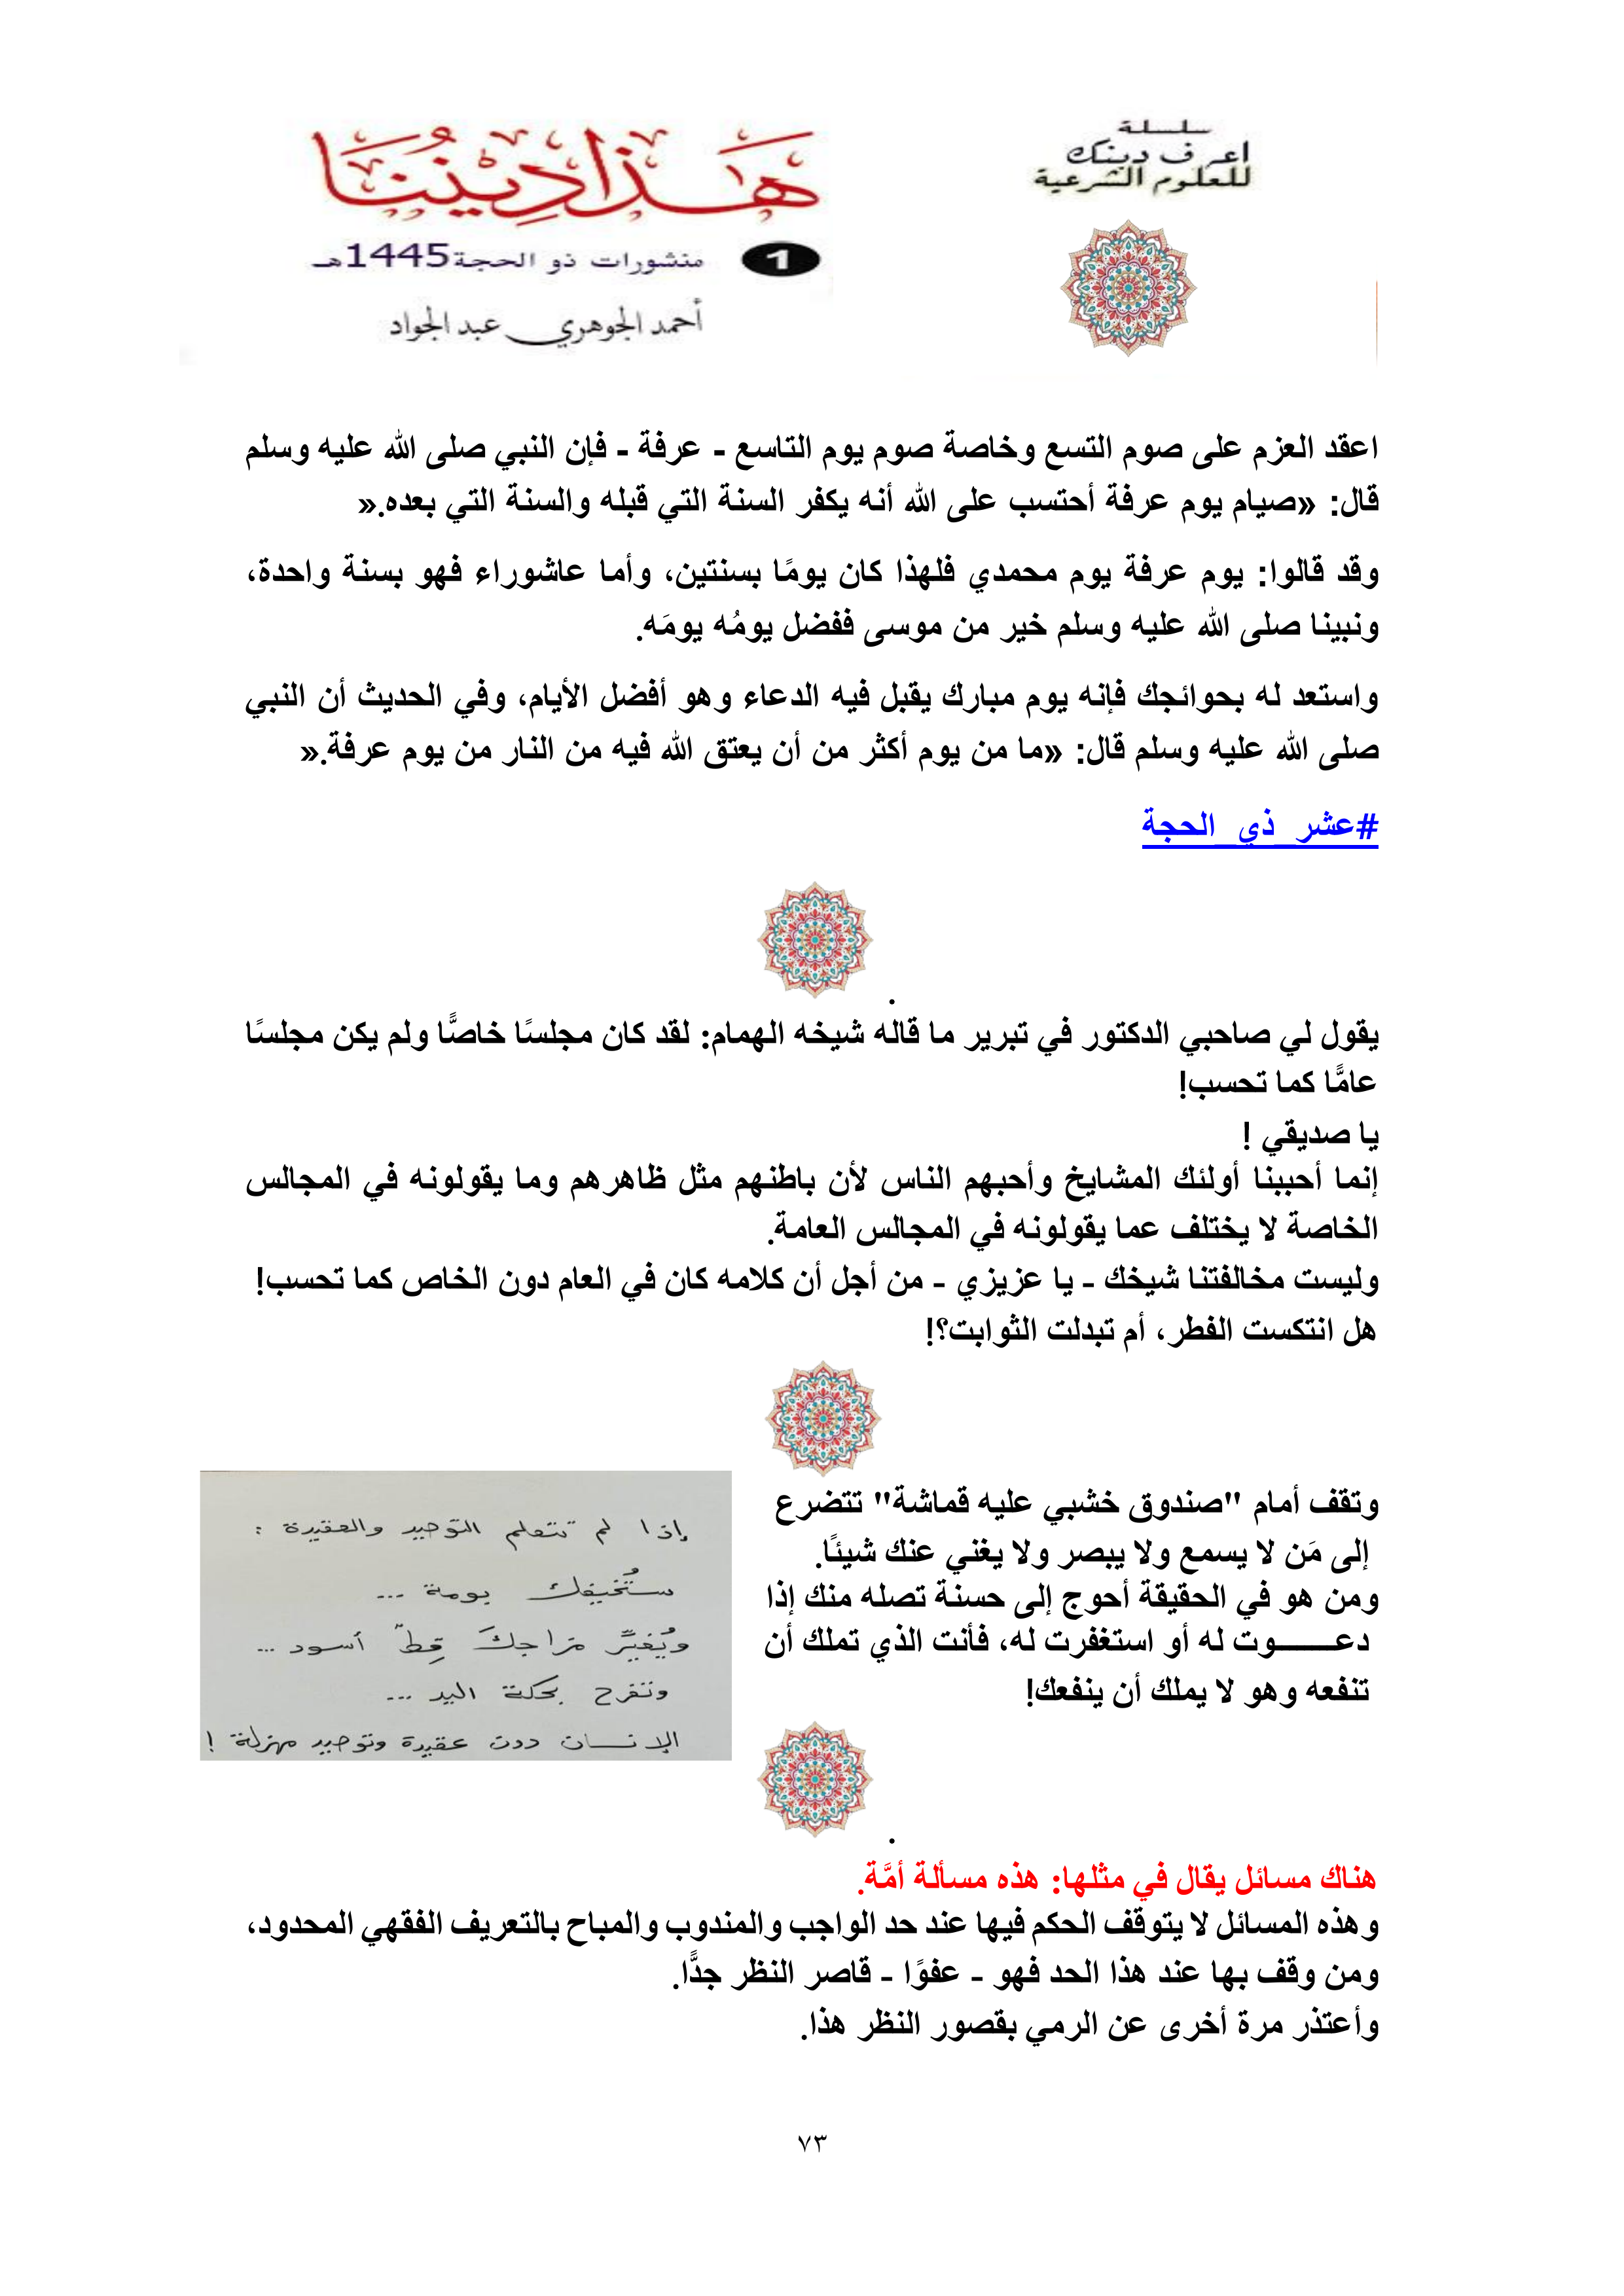 سلسلة
اعرف دينك
للعلوم الشرعية
هَذَا دِيْنُنَا
1 منشورات ذو الحجة 1445هـ
أحمد الجوهري عبد الجواد
اعقد العزم على صوم التسع وخاصة صوم يوم التاسع - عرفة - فإن النبي صلى الله عليه وسلم
قال: «صيام يوم عرفة أحتسب على الله أنه يكفر السنة التي قبله والسنة التي بعده.«
وقد قالوا: يوم عرفة يوم محمدي فلهذا كان يومًا بسنتين، وأما عاشوراء فهو بسنة واحدة،
ونبينا صلى الله عليه وسلم خير من موسى ففضل يومُه يومَه.
واستعد له بحوائجك فإنه يوم مبارك يقبل فيه الدعاء وهو أفضل الأيام، وفي الحديث أن النبي
صلى الله عليه وسلم قال: «ما من يوم أكثر من أن يعتق الله فيه من النار من يوم عرفة.«
#عشر_ذي_الحجة
.
يقول لي صاحبي الدكتور في تبرير ما قاله شيخه الهمام: لقد كان مجلسًا خاصًّا ولم يكن مجلسًا
عامًّا كما تحسب!
يا صديقي !
إنما أحببنا أولئك المشايخ وأحبهم الناس لأن باطنهم مثل ظاهرهم وما يقولونه في المجالس
الخاصة لا يختلف عما يقولونه في المجالس العامة.
وليست مخالفتنا شيخك - يا عزيزي - من أجل أن كلامه كان في العام دون الخاص كما تحسب!
هل انتكست الفطر، أم تبدلت الثوابت؟!
وتقف أمام "صندوق خشبي عليه قماشة" تتضرع
إلى مَن لا يسمع ولا يبصر ولا يغني عنك شيئًا.
ومن هو في الحقيقة أحوج إلى حسنة تصله منك إذا
دعـــــــوت له أو استغفرت له، فأنت الذي تملك أن
تنفعه وهو لا يملك أن ينفعك!
إذا لم تتعلم التوحيد والعقيدة :
ستُخيفك بومة ...
ويُغيِّر مزاجكَ قِطّ أسود ...
وتفرح بحكة اليد ...
الإنسان دون عقيدة وتوحيد مهزلة !
.
هناك مسائل يقال في مثلها: هذه مسألة أمَّة.
وهذه المسائل لا يتوقف الحكم فيها عند حد الواجب والمندوب والمباح بالتعريف الفقهي المحدود،
ومن وقف بها عند هذا الحد فهو - عفوًا - قاصر النظر جدًّا.
وأعتذر مرة أخرى عن الرمي بقصور النظر هذا.
٧٣